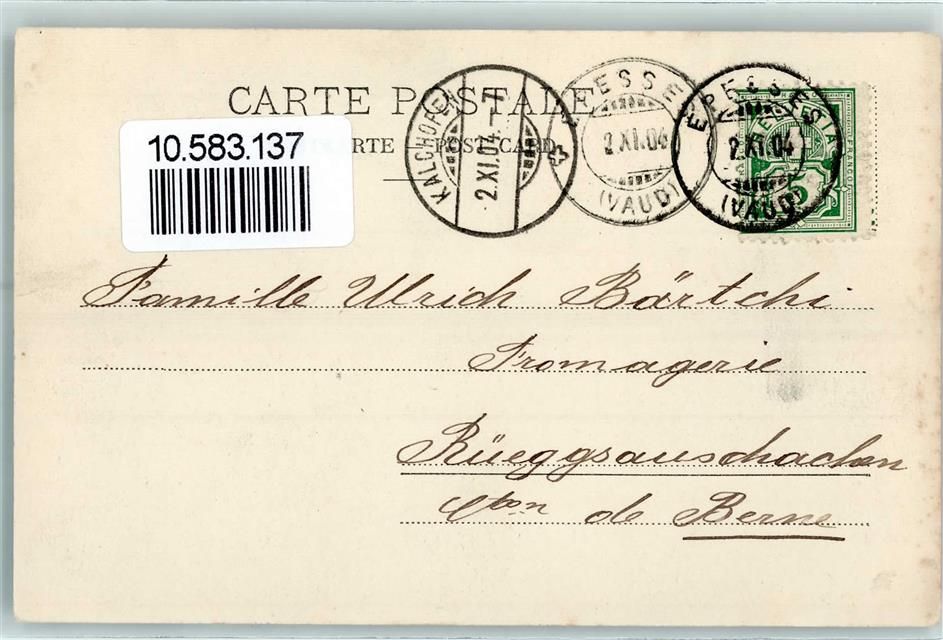 CARTE POSTALE
10.583.137
KARTE — POST-CARD
KALCHOFEN
2.XI.04 - 7
EPESSES
2 XI.04
(VAUD)
EPESSES
2 XI.04
(VAUD)
5
Famille Ulrich Bärtchi
Fromagerie
Rüeggsauschachen
Cton de Berne